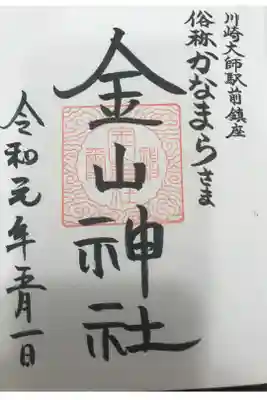 川崎大師駅前鎮座
俗称かなまらさま
金山神社
令和元年五月一日